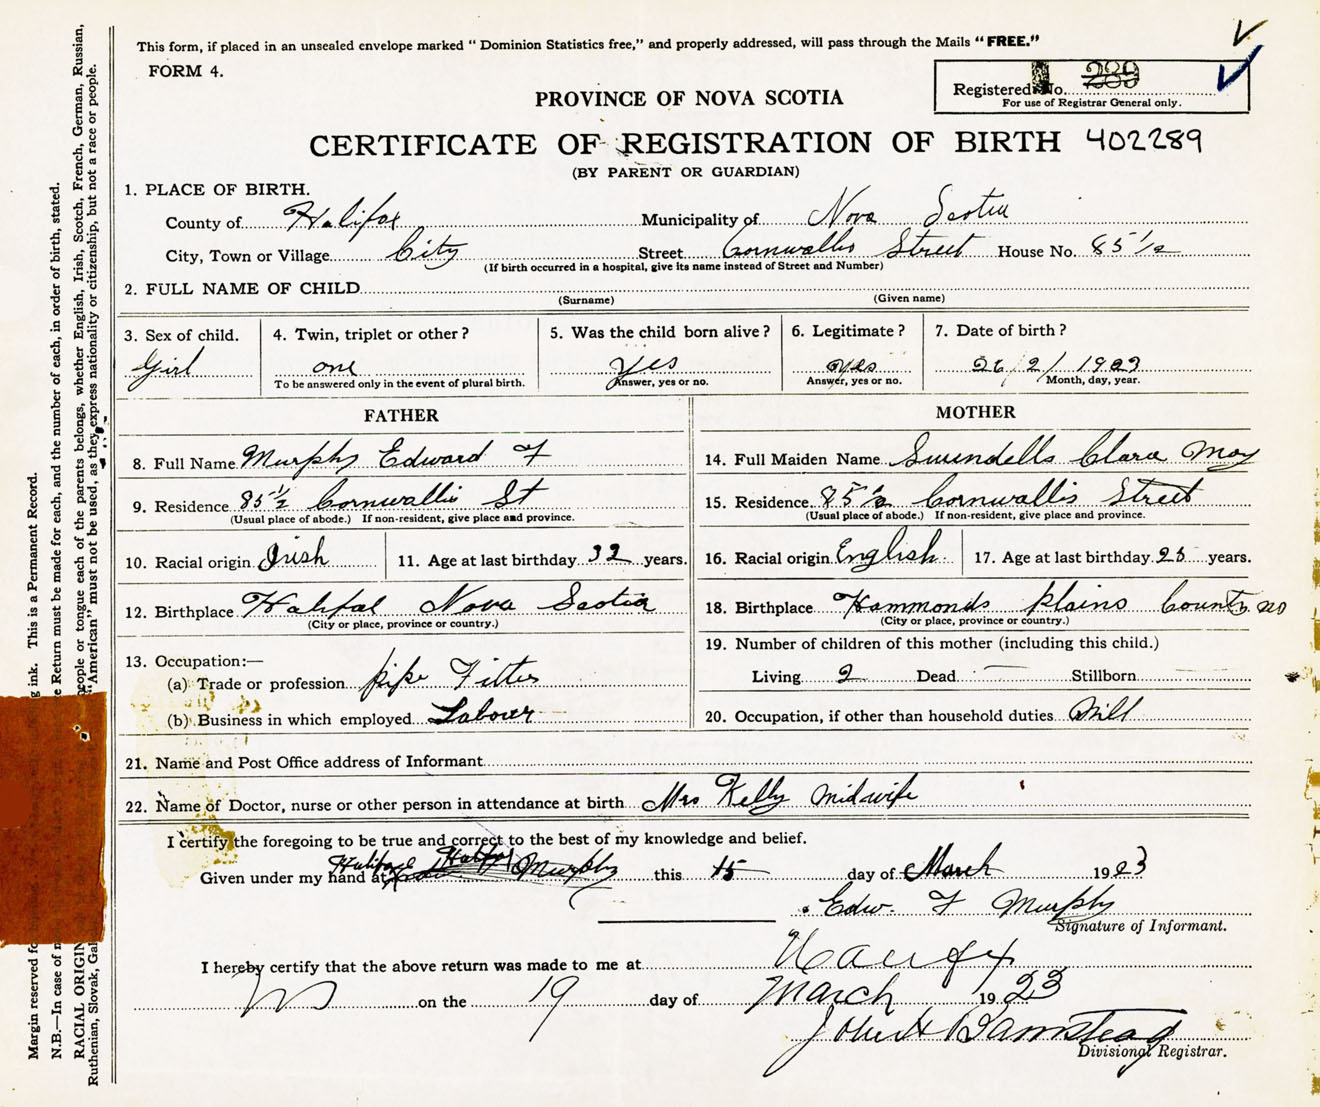 This form, if placed in an unsealed envelope marked " Dominion Statistics free," and properly addressed, will pass through the Mails "FREE."
FORM 4.
Registered No. 289
For use of Registrar General only.
PROVINCE OF NOVA SCOTIA
CERTIFICATE OF REGISTRATION OF BIRTH 402289
(BY PARENT OR GUARDIAN)
1. PLACE OF BIRTH.
County of Halifax Municipality of Nova Scotia
City, Town or Village City Street Cornwallis Street House No. 85 1/2
(If birth occurred in a hospital, give its name instead of Street and Number)
2. FULL NAME OF CHILD
(Surname) (Given name)
3. Sex of child. 4. Twin, triplet or other? 5. Was the child born alive? 6. Legitimate? 7. Date of birth?
Girl one yes yes 26/2/1923
To be answered only in the event of plural birth. Answer, yes or no. Answer, yes or no. Month, day, year.
FATHER MOTHER
8. Full Name Murphy Edward F 14. Full Maiden Name Swindells Clara May
9. Residence 85 1/2 Cornwallis St 15. Residence 85 1/2 Cornwallis Street
(Usual place of abode.) If non-resident, give place and province. (Usual place of abode.) If non-resident, give place and province.
10. Racial origin Irish 11. Age at last birthday 32 years. 16. Racial origin English 17. Age at last birthday 25 years.
12. Birthplace Halifax Nova Scotia 18. Birthplace Hammonds plains County
(City or place, province or country.) (City or place, province or country.)
19. Number of children of this mother (including this child.)
13. Occupation:—
(a) Trade or profession pipe Fitter Living 2 Dead — Stillborn
(b) Business in which employed Labour 20. Occupation, if other than household duties
21. Name and Post Office address of Informant
22. Name of Doctor, nurse or other person in attendance at birth Mrs Kelly midwife
I certify the foregoing to be true and correct to the best of my knowledge and belief.
Given under my hand at Halifax Halifax Murphy this 15 day of March 1923
Edw. F Murphy
Signature of Informant.
I hereby certify that the above return was made to me at Halifax
NS on the 19 day of March 1923
John H Barnstead
Divisional Registrar.
Margin reserved for
g ink. This is a Permanent Record.
N.B.—In case of
e Return must be made for each, and the number of each, in order of birth, stated.
RACIAL ORIGIN
people or tongue each of the parents belongs, whether English, Irish, Scotch, French, German, Russian,
Ruthenian, Slovak,
"American" must not be used, as they express nationality or citizenship, but not a race or people.